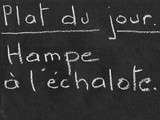 Plat du jour.
Hampe
à l'échalote.